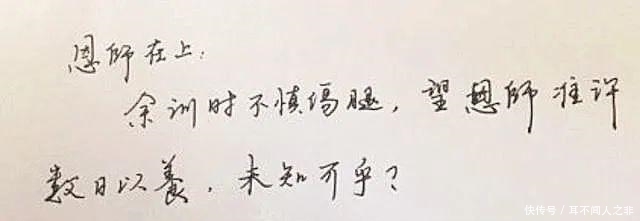 恩師在上：
余训时不慎傷腿，望恩師准许
数日以養，未知可乎？
快传号／耳不闻人之非